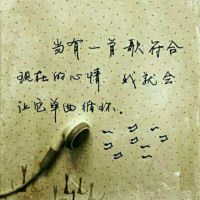 当有一首歌符合
现在的心情，我就会
让它单曲循环。